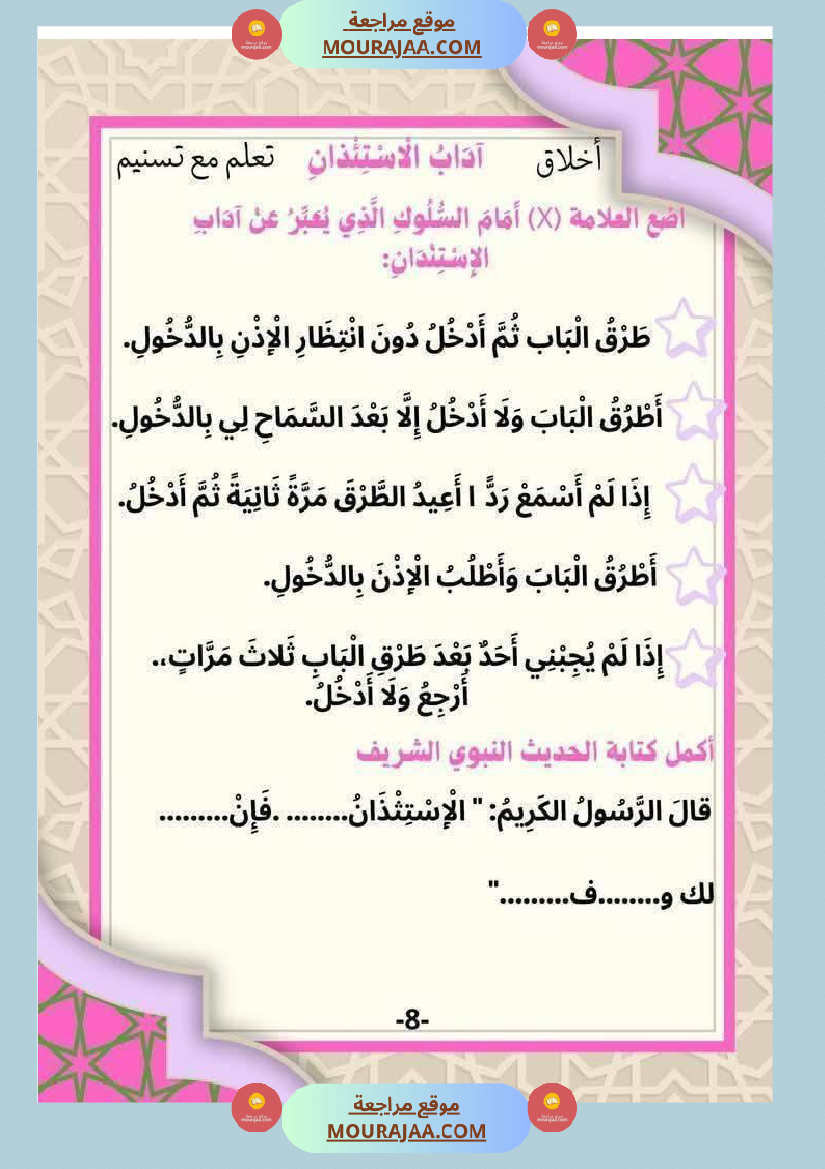 موقع مراجعة
MOURAJAA.COM
أخلاق آدَابُ الْاسْتِئْذانِ تعلم مع تسنيم
اضع العلامة (X) أَمَامَ السُّلُوكِ الَّذِي يُعَبِّرُ عَنْ آدَابِ
الإِسْتِئْذَانِ:
طَرْقُ الْبَاب ثُمَّ أَدْخُلُ دُونَ انْتِظَارِ الْإِذْنِ بِالدُّخُولِ.
أَطْرُقُ الْبَابَ وَلَا أَدْخُلُ إِلَّا بَعْدَ السَّمَاحِ لِي بِالدُّخُولِ.
إِذَا لَمْ أَسْمَعْ رَدًّ ا أَعِيدُ الطَّرْقَ مَرَّةً ثَانِيَةً ثُمَّ أَدْخُلُ.
أَطْرُقُ الْبَابَ وَأَطْلُبُ الْإِذْنَ بِالدُّخُولِ.
إِذَا لَمْ يُجِبْنِي أَحَدٌ بَعْدَ طَرْقِ الْبَابِ ثَلاثَ مَرَّاتٍ،.
أَرْجِعُ وَلَا أَدْخُلُ.
أكمل كتابة الحديث النبوي الشريف
قالَ الرَّسُولُ الكَرِيمُ: " الْإِسْتِئْذَانُ........ .فَإِنْ.........
لك و........ف........."
-8-
موقع مراجعة
MOURAJAA.COM